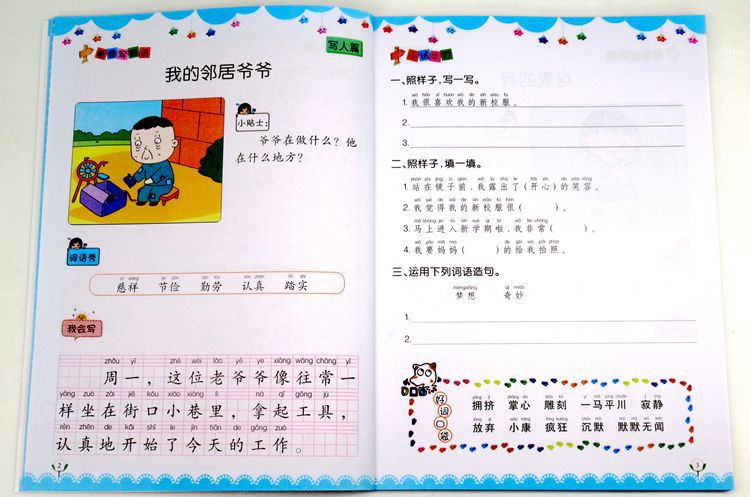 写人篇
我的邻居爷爷
小贴士:
爷爷在做什么?他
在什么地方?
词语秀
cí xiáng jié jiǎn qín láo rèn zhēn tā shi
慈祥 节俭 勤劳 认真 踏实
我会写
zhōu yī zhè wèi lǎo yé ye xiàng wǎng cháng yī
周一,这位老爷爷像往常一
yàng zuò zài jiē kǒu xiǎo xiàng lǐ ná qǐ gōng jù
样坐在街口小巷里,拿起工具,
rèn zhēn de kāi shǐ le jīn tiān de gōng zuò
认真地开始了今天的工作。
2
一、照样子,写一写。
wǒ hěn xǐ huan wǒ de xīn xiào fú
1.我很喜欢我的新校服。
2.
3.
二、照样子,填一填。
zhàn zài jìng zi qián wǒ lù chū le kāi xīn de xiào róng
1.站在镜子前,我露出了(开心)的笑容。
wǒ jué de wǒ de xīn xiào fú hěn
2.我觉得我的新校服很( )。
mǎ shàng jìn rù xīn xué qī la wǒ fēi cháng
3.马上进入新学期啦,我非常( )。
wǒ yào mā ma de gěi wǒ pāi zhào
4.我要妈妈( )的给我拍照。
三、运用下列词语造句。
mèng xiǎng qí miào
梦想 奇妙
1.
2.
好词口袋
拥挤 掌心 雕刻 一马平川 寂静
放弃 小康 疯狂 沉默 默默无闻
3